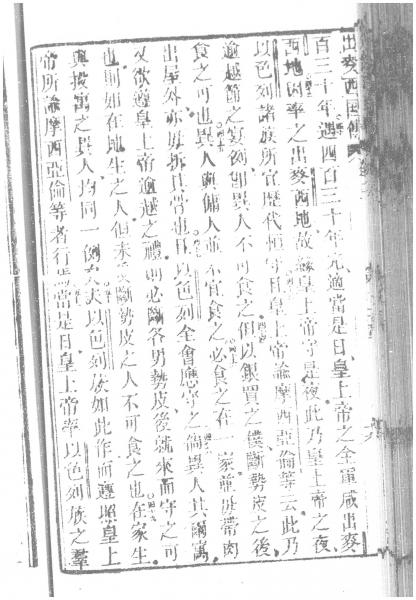 出麥西國傳
百三十年遇四百三十年完適當是日皇上帝之全軍咸出麥
西地因率之出麥西地故緣皇上帝守是夜此乃皇上帝之夜
以色列諸族所宜歷代恒守日皇上帝諭摩西亞倫等云此乃
逾越節之宴例卽異人不可食之但以銀買之僕斷勢皮之後
食之可也異人與傭人並不宜食之必食之在一家並毋帶肉
出屋外亦毋折其骨也且以色列全會應守之倘異人共爾寓
又欲遵皇上帝逾越之禮則必斷各男勢皮後就來而守之可
也則如在地生之人但未受斷勢皮之人不可食之也在家生
與投寓之異人均同一例夫以色列族如此作而遵照皇上
帝所諭摩西亞倫等者行焉當是日皇上帝率以色列族之羣